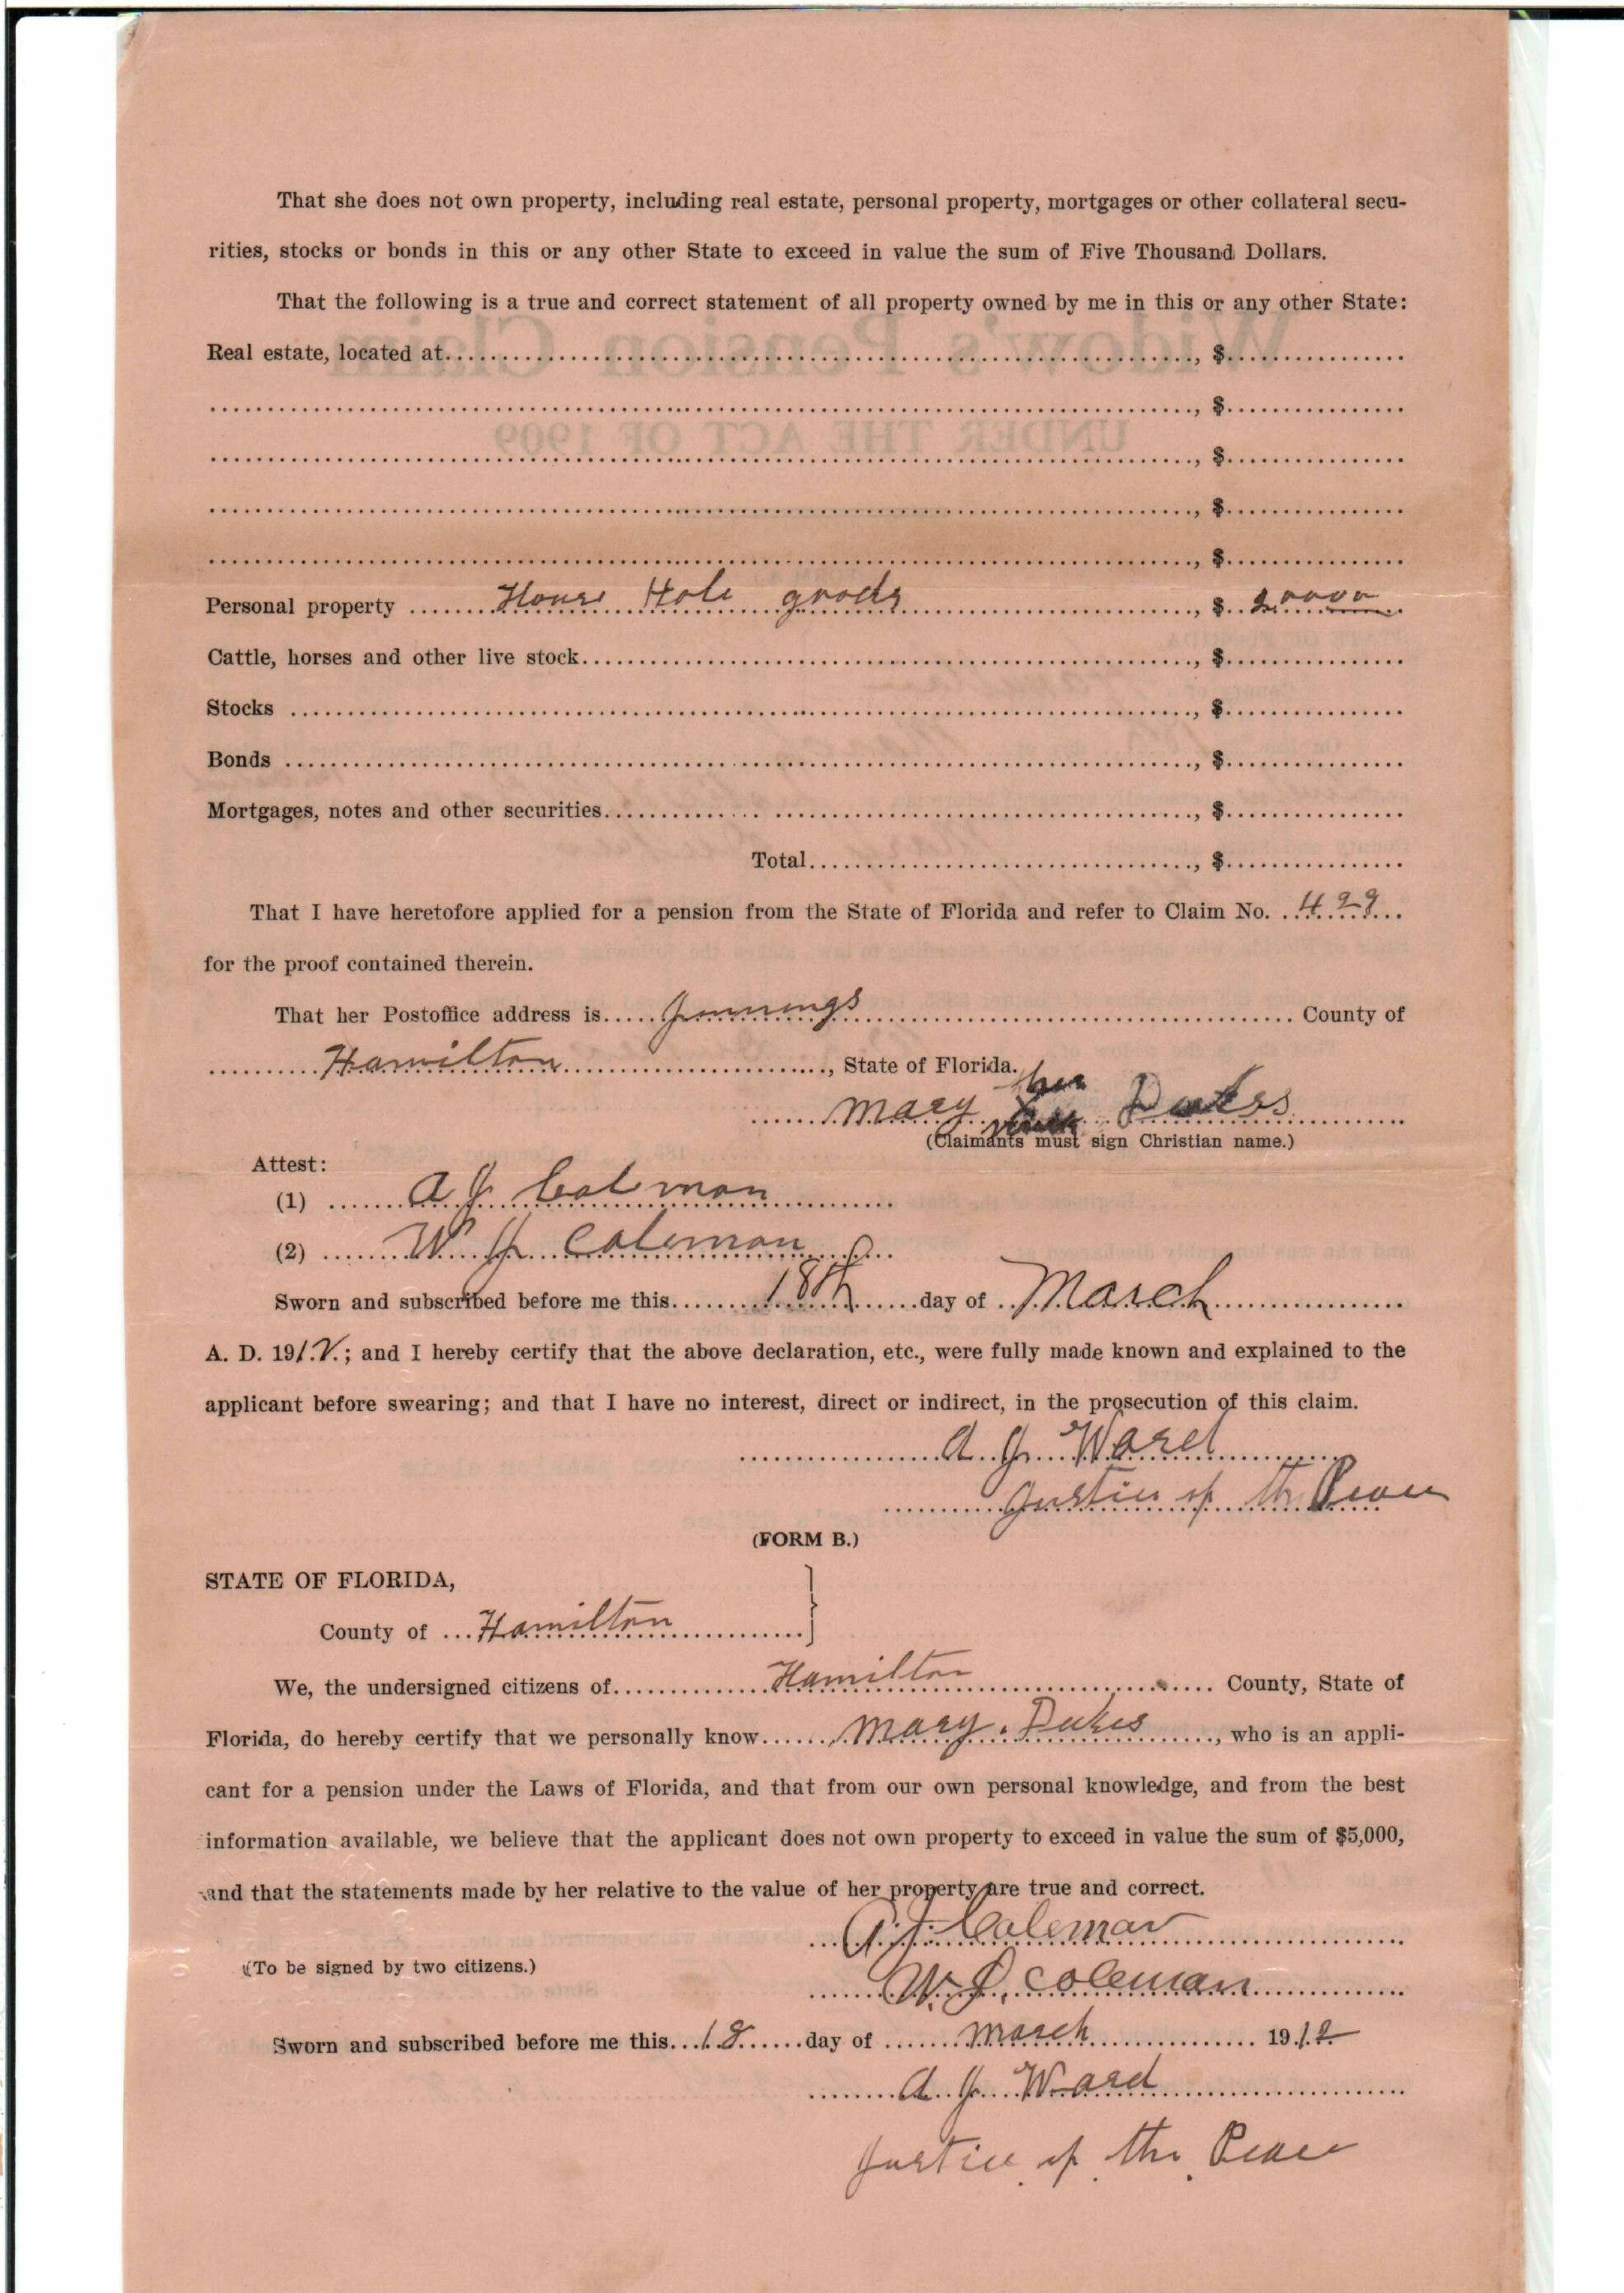 That she does not own property, including real estate, personal property, mortgages or other collateral secu-
rities, stocks or bonds in this or any other State to exceed in value the sum of Five Thousand Dollars.
That the following is a true and correct statement of all property owned by me in this or any other State:
Widow's Pension Claim
Real estate, located at ...., $....
...., $....
UNDER THE ACT OF 1909
...., $....
...., $....
...., $....
Personal property .... House Hole goods ...., $ 200 00
Cattle, horses and other live stock...., $....
Stocks ...., $....
Bonds ...., $....
Mortgages, notes and other securities...., $....
Total...., $....
That I have heretofore applied for a pension from the State of Florida and refer to Claim No. 429
for the proof contained therein.
That her Postoffice address is.... Jennings .... County of
.... Hamilton ...., State of Florida.
her
Mary Dukes
mark
(Claimants must sign Christian name.)
Attest:
(1) A J Coleman
(2) W J Coleman
Sworn and subscribed before me this.... 18th ....day of March
A. D. 191V.; and I hereby certify that the above declaration, etc., were fully made known and explained to the
applicant before swearing; and that I have no interest, direct or indirect, in the prosecution of this claim.
A J Ward
Justice of the Peace
(FORM B.)
STATE OF FLORIDA,
County of ... Hamilton
We, the undersigned citizens of.... Hamilton .... County, State of
Florida, do hereby certify that we personally know.... Mary. Dukes ...., who is an appli-
cant for a pension under the Laws of Florida, and that from our own personal knowledge, and from the best
information available, we believe that the applicant does not own property to exceed in value the sum of $5,000,
and that the statements made by her relative to the value of her property are true and correct.
A. J. Coleman
(To be signed by two citizens.)
W. J. Coleman
Sworn and subscribed before me this... 18 ....day of .... March .... 1912
A J Ward
Justice of the Peace